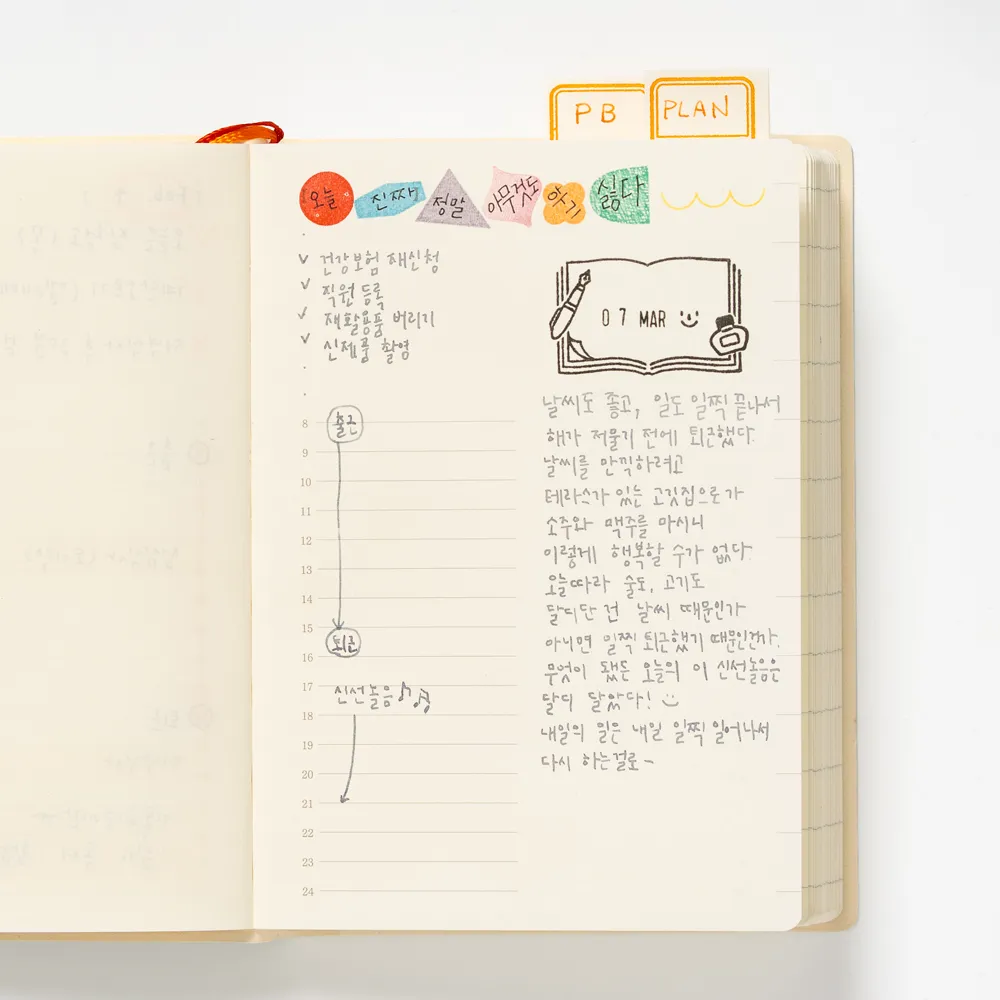 PB
PLAN
오늘 진짜 정말 아무것도 하기 싫다
건강보험 재신청
직원 등록
재활용품 버리기
신제품 촬영
07 MAR
8
출근
9
10
11
12
13
14
15
퇴근
16
17
신선놀음
18
19
20
21
22
23
24
날씨도 좋고, 일도 일찍 끝나서
해가 저물기 전에 퇴근했다.
날씨를 만끽하려고
테라스가 있는 고깃집으로 가
소주와 맥주를 마시니
이렇게 행복할 수가 없다.
오늘따라 술도, 고기도
달디단 건 날씨 때문인가
아니면 일찍 퇴근했기 때문인건가.
무엇이 됐든 오늘의 이 신선놀음은
달디 달았다!
내일의 일은 내일 일찍 일어나서
다시 하는걸로~